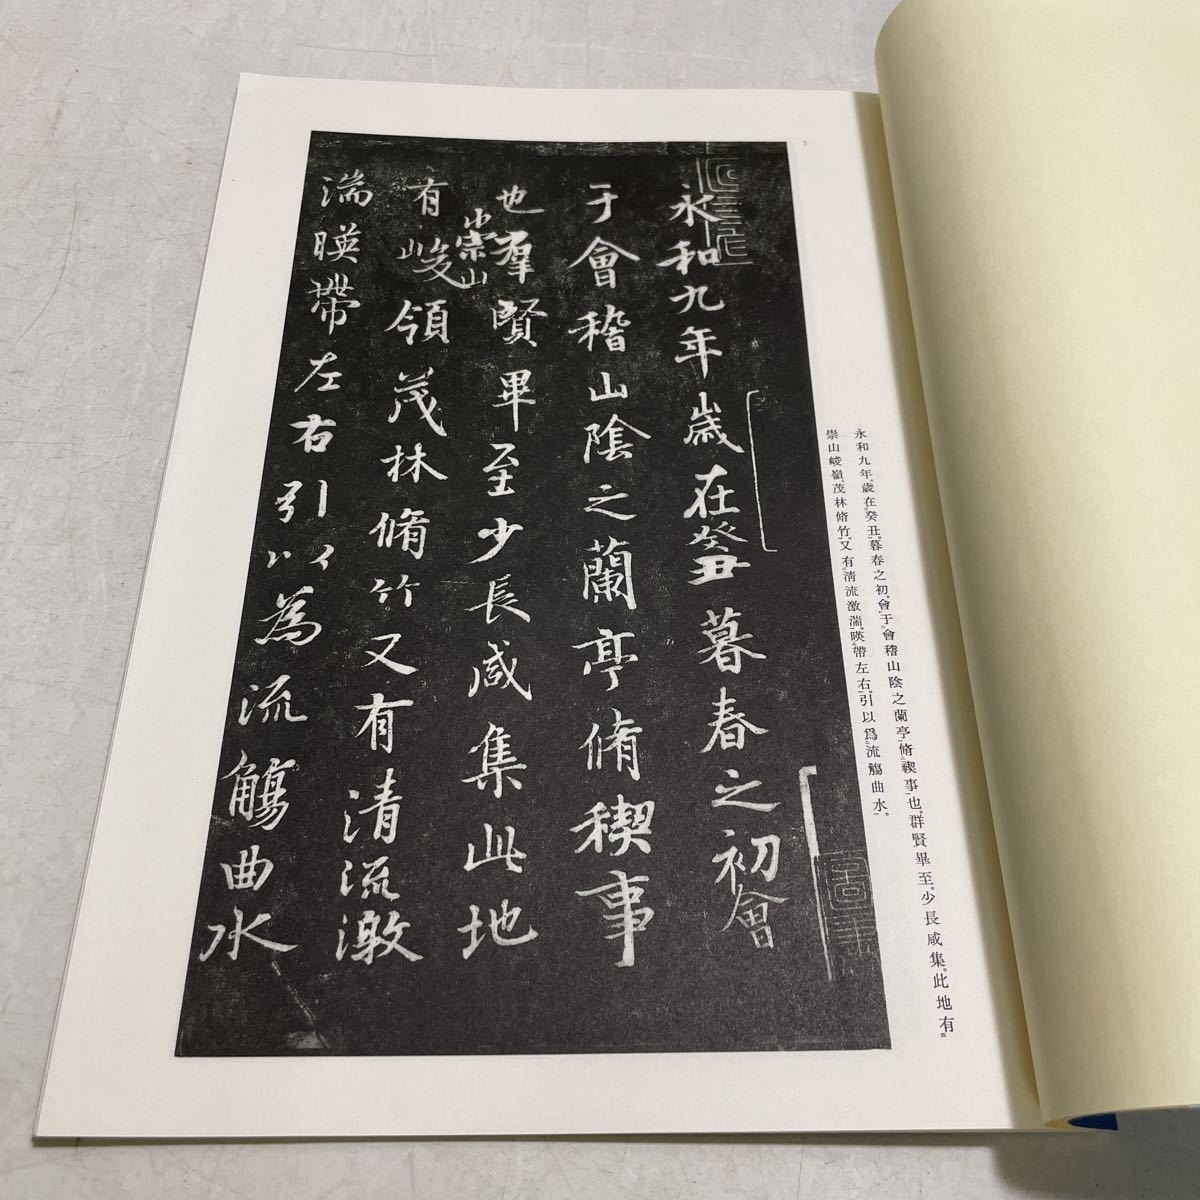 永和九年。歲在癸丑。暮春之初。會于會稽山陰之蘭亭。脩禊事也。群賢畢至。少長咸集。此地有
崇山峻嶺。茂林脩竹。又有清流激湍。暎帶左右。引以爲流觴曲水。
永和九年歲在癸丑暮春之初會
于會稽山陰之蘭亭脩稧事
也羣賢畢至少長咸集此地
崇山
有峻領茂林脩竹又有清流激
湍暎帶左右引以為流觴曲水